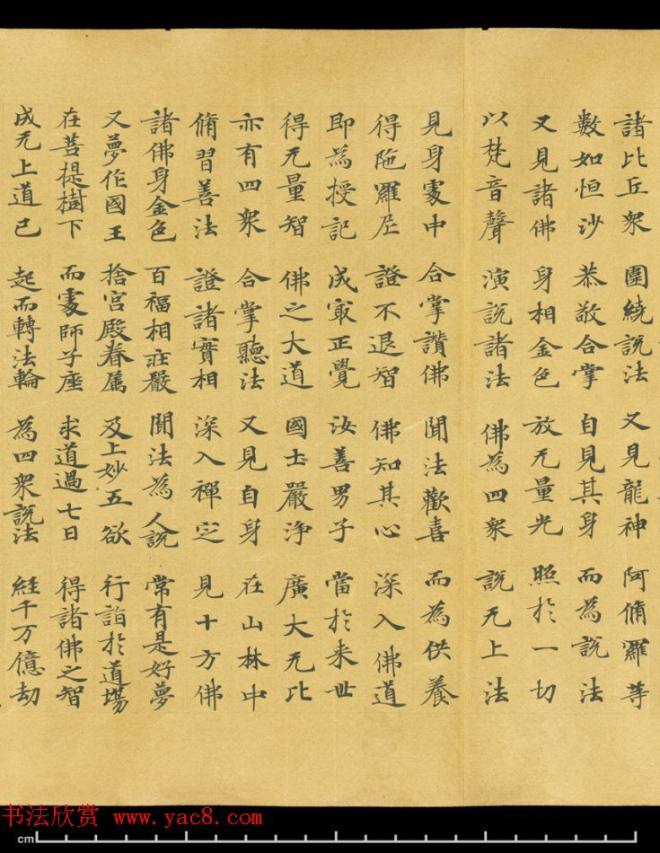 諸比丘衆 圍繞說法 又見龍神 阿脩羅等
數如恒沙 恭敬合掌 自見其身 而為說法
又見諸佛 身相金色 放无量光 照於一切
以梵音聲 演說諸法 佛為四衆 說无上法
見身處中 合掌讚佛 聞法歡喜 而為供養
得陁羅尼 證不退智 佛知其心 深入佛道
即為授記 成寂正覺 汝善男子 當於来世
得无量智 佛之大道 國土嚴淨 廣大无比
亦有四衆 合掌聽法 又見自身 在山林中
脩習善法 證諸實相 深入禪定 見十方佛
諸佛身金色 百福相莊嚴 聞法為人說 常有是好夢
又夢作國王 捨宮殿眷属 及上妙五欲 行詣於道場
在菩提樹下 而處師子座 求道過七日 得諸佛之智
成无上道已 起而轉法輪 為四衆說法 經千万億劫
书法欣赏 www.yac8.com
cm